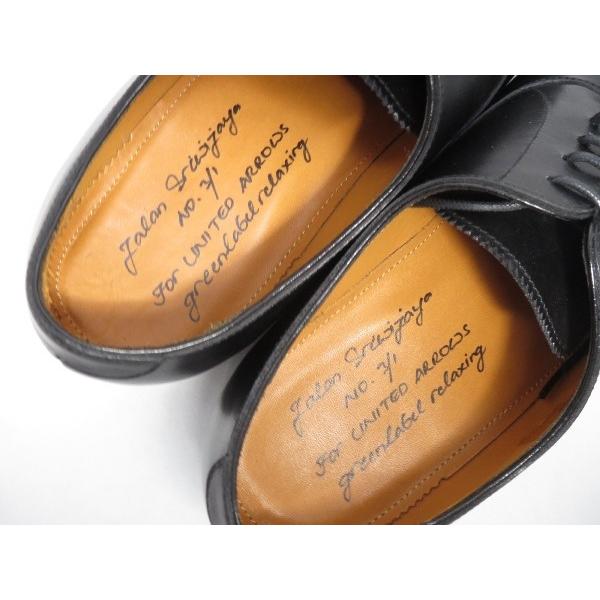 Jalan Sriwijaya
NO. 7/1
For UNITED ARROWS
green label relaxing
Jalan Sriwijaya
NO. 7/1
For UNITED ARROWS
green label relaxing